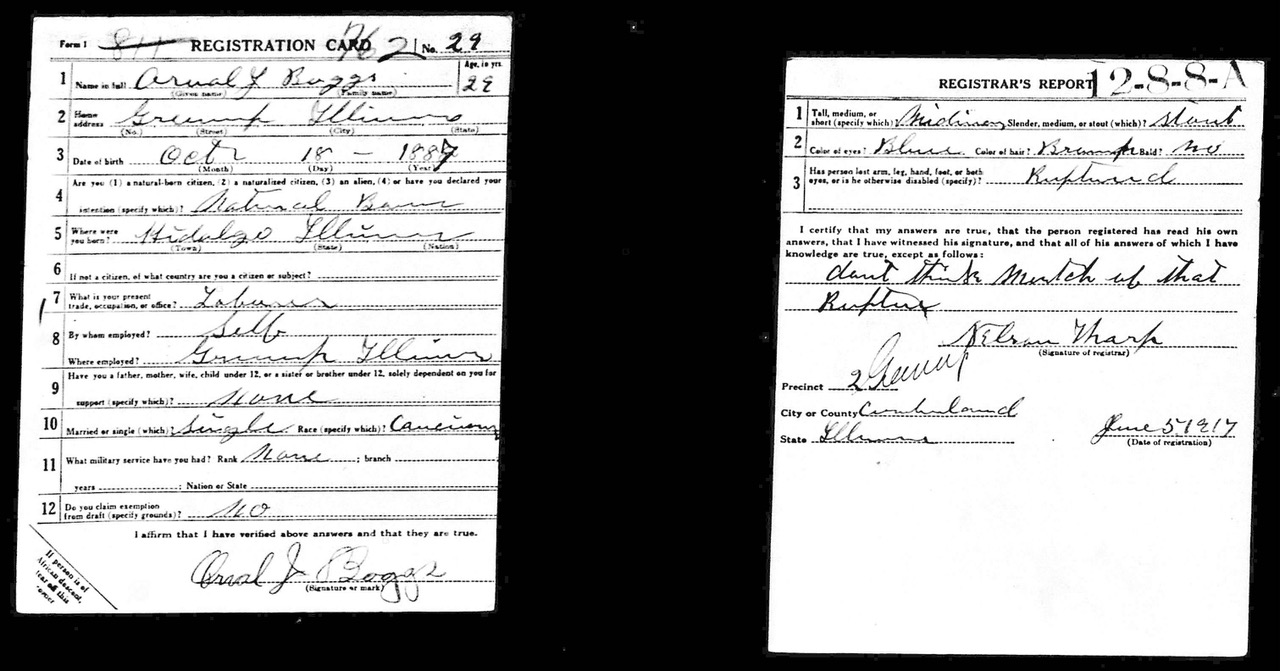 Form 1 811 REGISTRATION CARD 762 No. 29
1 Name in full Orval J Boggs Age, in yrs. 29
(Given name) (Family name)
2 Home address Greenup Illinois
(No.) (Street) (City) (State)
3 Date of birth Oct 18 - 1887
(Month) (Day) (Year)
Are you (1) a natural-born citizen, (2) a naturalized citizen, (3) an alien, (4) or have you declared your
4 intention (specify which)? Natural Born
5 Where were you born? Hidalgo Illinois
(Town) (State) (Nation)
6 If not a citizen, of what country are you a citizen or subject?
7 What is your present trade, occupation, or office? Laborer
8 By whom employed? Self
Where employed? Greenup Illinois
9 Have you a father, mother, wife, child under 12, or a sister or brother under 12, solely dependent on you for
support (specify which)? None
10 Married or single (which)? Single Race (specify which)?
11 What military service have you had? Rank None ; branch
years ; Nation or State
12 Do you claim exemption from draft (specify grounds)? No
I affirm that I have verified above answers and that they are true.
Orval J Boggs
(Signature or mark)
If person is of
African descent,
tear off this
corner
REGISTRAR'S REPORT 12-8-8-A
1 Tall, medium, or short (specify which)? Slender, medium, or stout (which)? stout
2 Color of eyes? Blue Color of hair? Brown Bald? No
3 Has person lost arm, leg, hand, foot, or both eyes, or is he otherwise disabled (specify)? Ruptured
I certify that my answers are true, that the person registered has read his own
answers, that I have witnessed his signature, and that all of his answers of which I have
knowledge are true, except as follows:
dont think mutch of that
Rupture
Nelson Tharp
(Signature of registrar)
Precinct 2 Greenup
City or County Cumberland
State Illinois June 5 1917
(Date of registration)